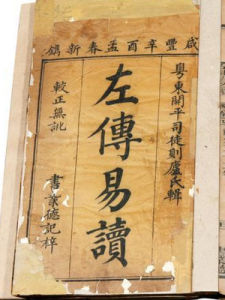 咸豐辛酉孟春新鐫
粵東開平司徒則廬氏輯
左傳易讀
較正無訛
書業德記梓